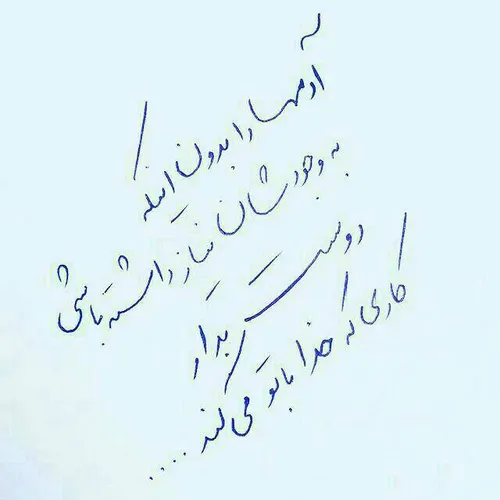 آدمها را بدون اینکه
به وجودشان نیاز داشته باشی
دوست بدار
کاری که خدا با تو می کند ....